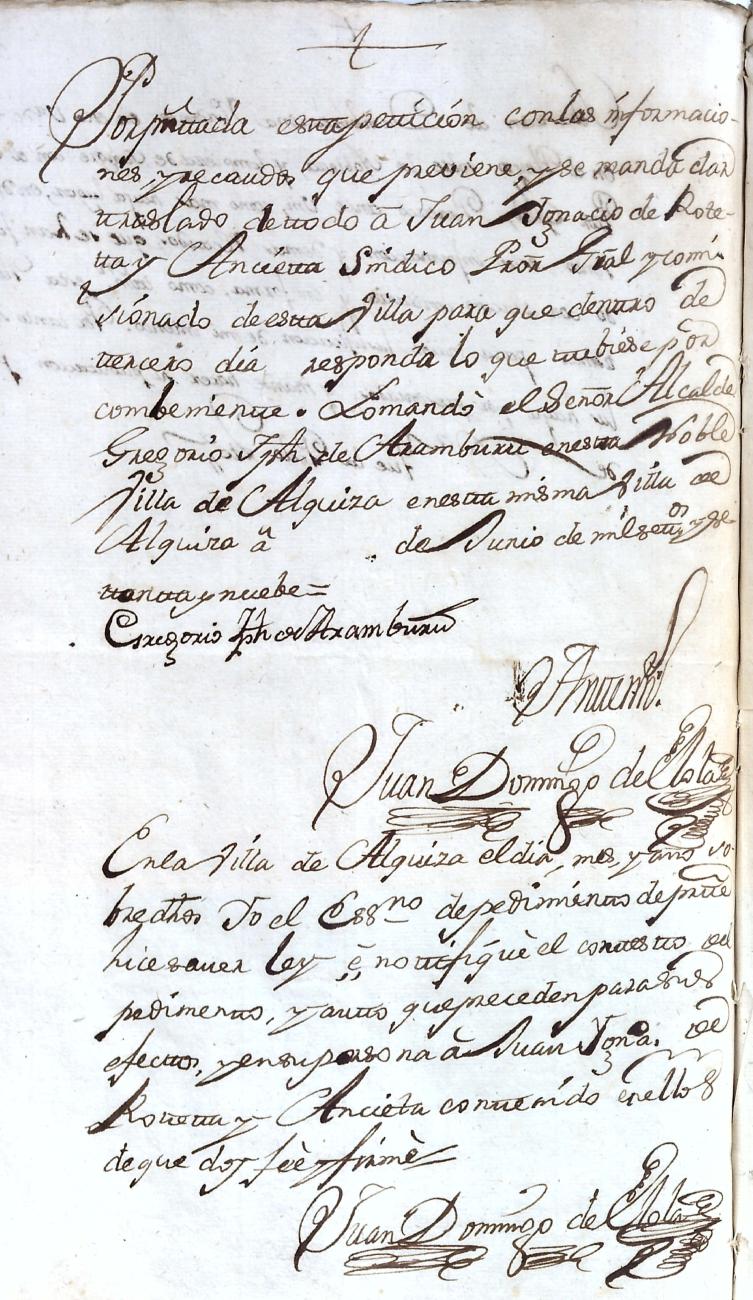 Por pnttada estta petticion con las informacio-
nes, y recaudos que previene, y se manda dar
ttraslado de ttodo â Juan Ignacio de Rote-
tta y Ancietta Sindico Pror Gral y comi-
sionado de estta Villa para que denttro de
ttercero dia responda lo que ttubiese por
combenientte. Lo mandò el Señor Alcalde
Gregorio Jph de Aramburu en estta Noble
Villa de Alquiza en estta misma Villa de
Alquiza â de Junio de mil settos y se
ttentta y nuebe=
Gregorio Jph de Aramburu
Antte mi.
Juan Domingo de Elola
En la Villa de Alquiza el dia, mes, y año so-
bredhos Yo el Essno de pedimiento de partte
hice saver ley è nottifiquè el conttestto del
pedimentto, y autto que preceden para sus
efecttos, y en su persona â Juan Igno. de
Rottetta y Ancieta conttenido en ellos
de que doy feè y firmè=
Juan Domingo de Elola